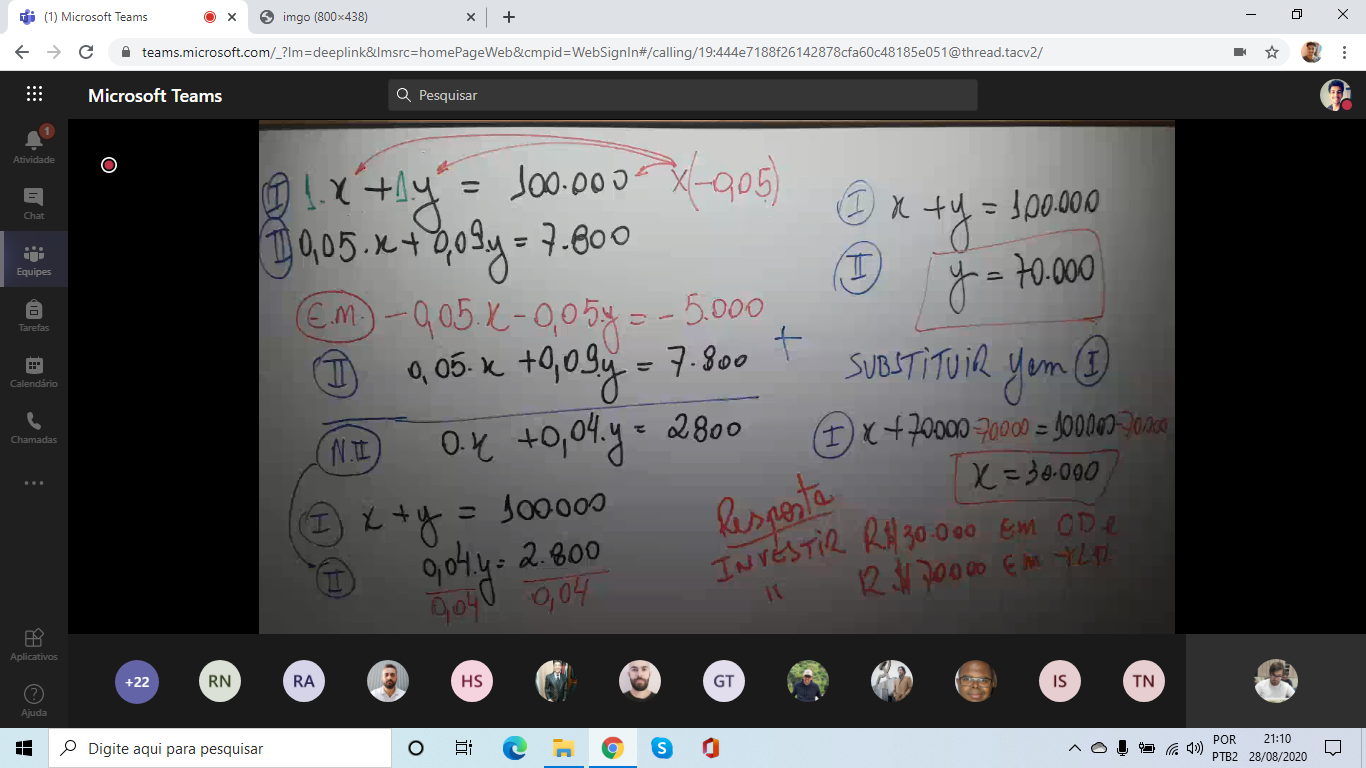 (1) Microsoft Teams
imgo (800×438)
teams.microsoft.com/_?lm=deeplink&lmsrc=homePageWeb&cmpid=WebSignIn#/calling/19:444e7188f26142878cfa60c48185e051@thread.tacv2/
Microsoft Teams
Pesquisar
1
Atividade
Chat
Equipes
Tarefas
Calendário
Chamadas
Aplicativos
Ajuda
I 1.x + 1.y = 100.000 x(-0,05)
II 0,05.x + 0,09.y = 7.800
E.M. -0,05.x - 0,05.y = -5.000
II 0,05.x + 0,09.y = 7.800 +
N.II 0.x + 0,04.y = 2800
I x + y = 100000
II 0,04.y = 2.800
0,04 0,04
I x + y = 100.000
II y = 70.000
SUBSTITUIR y em I
I x + 70000 - 70000 = 100000 - 70.000
x = 30.000
Resposta
INVESTIR R$ 30.000 EM
" R$ 70000 EM
+22
RN
RA
HS
GT
IS
TN
Digite aqui para pesquisar
POR
PTB2
21:10
28/08/2020